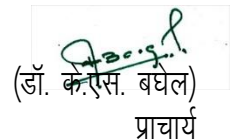 (डॉ. के.एस. बघेल)
प्राचार्य